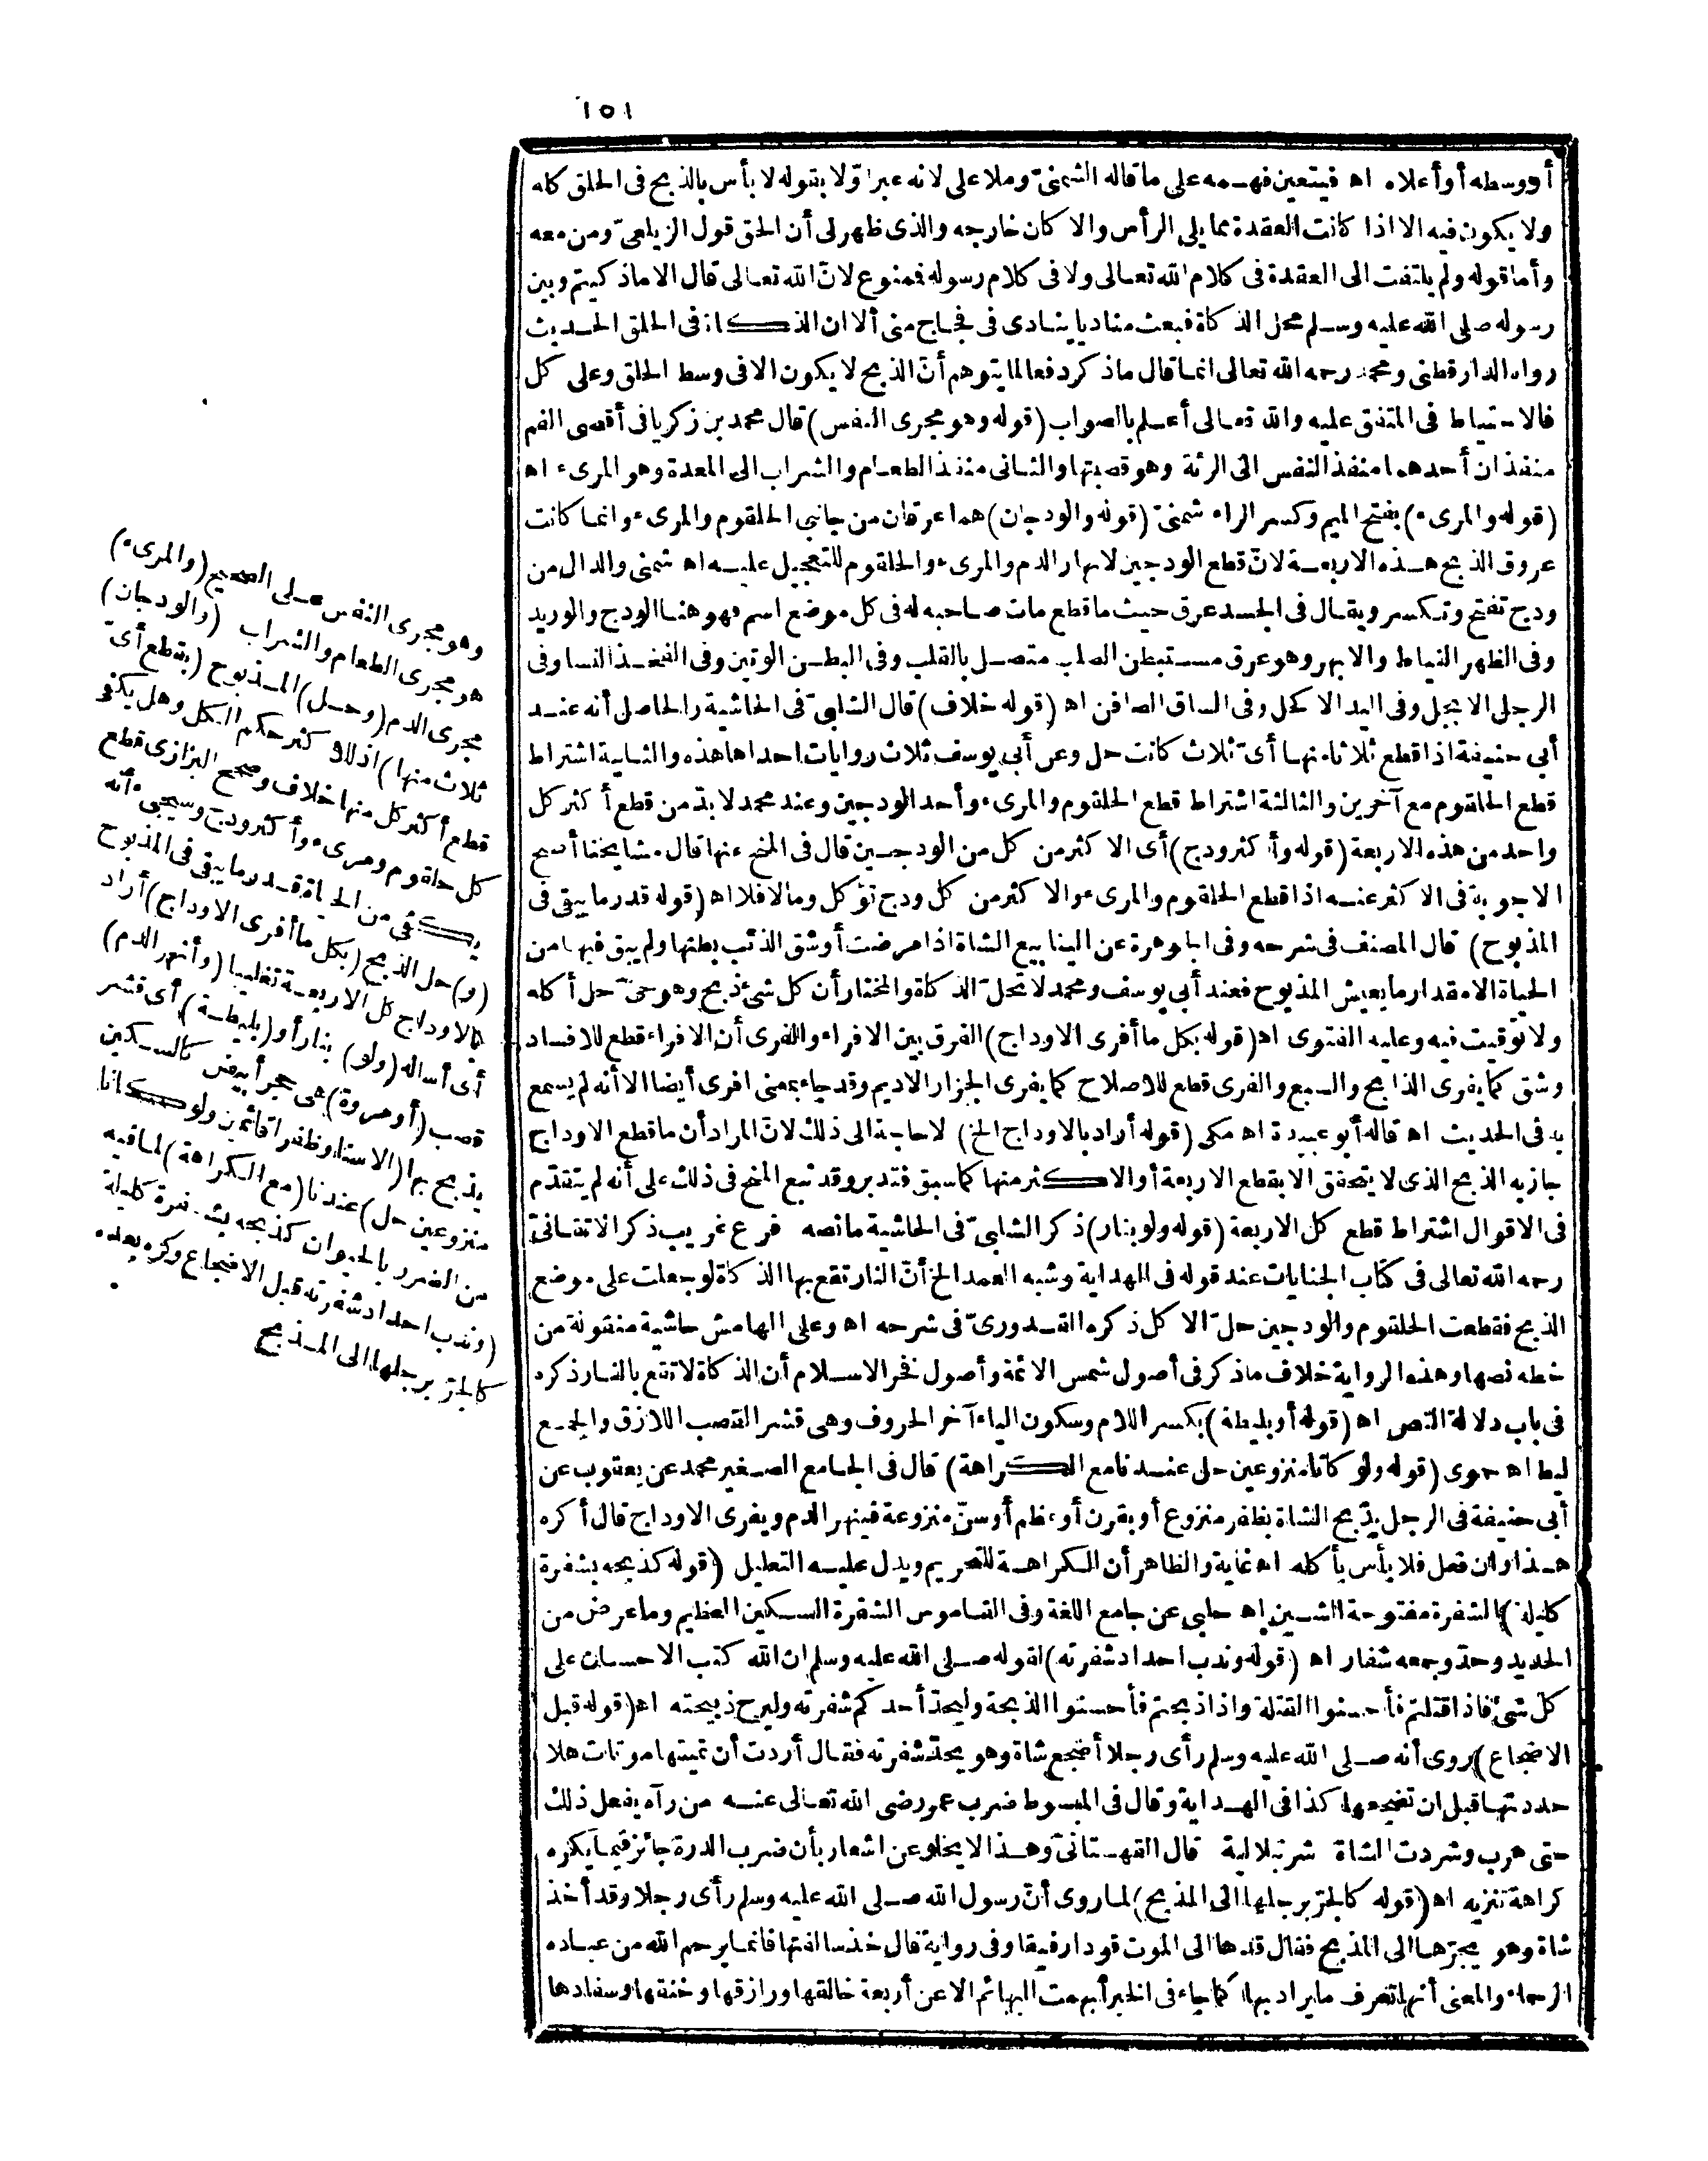 ١٥١
أو وسطه أو أعلاه اه فيتعين فهمه على ما قاله الشمنىّ وملا على لانه عبر اوّلا بقوله لا بأس بالذبح فى الحلق كله
ولا يكون فيه الا اذا كانت العقدة مما يلى الرأس والا كان خارجه والذى ظهر لى أن الحق قول الزيلعىّ ومن معه
وأما قوله ولم يلتفت الى العقدة فى كلام الله تعالى ولا فى كلام رسوله فممنوع لانّ الله تعالى قال الا ما ذكيتم وبين
رسوله صلى الله عليه وسلم محل الذكاة فبعث مناديا ينادى فى فجاج منى ألا ان الذكاة فى الحلق الحديث
رواه الدارقطنى ومحمد رحمه الله تعالى انما قال ما ذكر دفعا لما يتوهم أنّ الذبح لا يكون الا فى وسط الحلق وعلى كل
فالاحتياط فى المتفق عليه والله تعالى أعلم بالصواب (قوله وهو مجرى النفس) قال محمد بن زكريا فى أقصى الفم
منفذان أحدهما منفذ النفس الى الرئة وهو قصبتها والثانى منفذ الطعام والشراب الى المعدة وهو المرىء اه
(قوله والمرىء) بفتح الميم وكسر الراء شمنىّ (قوله والودجان) هما عرقان من جانبى الحلقوم والمرىء وانما كانت
عروق الذبح هذه الاربعة لانّ قطع الودجين لانهار الدم والمرىء والحلقوم للتعجيل عليه اه شمنى والدال من
ودج تفتح وتكسر ويقال فى الجسد عرق حيث ما قطع مات صاحبه له فى كل موضع اسم فهو هنا الودج والوريد
وفى الظهر النياط والابهر وهو عرق مستبطن الصلب متصل بالقلب وفى البطن الوتين وفى الفخذ النسا وفى
الرجل الابجل وفى اليد الاكحل وفى الساق الصافن اه (قوله خلاف) قال الشلبىّ فى الحاشية والحاصل أنه عند
أبى حنيفة اذا قطع ثلاثا منها أىّ ثلاث كانت حل وعن أبى يوسف ثلاث روايات احداها هذه والثانية اشتراط
قطع الحلقوم مع آخرين والثالثة اشتراط قطع الحلقوم والمرىء وأحد الودجين وعند محمد لا بدّ من قطع أكثر كل
واحد من هذه الاربعة (قوله وأكثر ودج) أى الاكثر من كل من الودجين قال فى المنح عنها قال مشايخنا أصح
الاجوبة فى الاكثر عنه اذا قطع الحلقوم والمرىء والاكثر من كل ودج تؤكل وما لا فلا اه (قوله قدر ما يبقى فى
المذبوح) قال المصنف فى شرحه وفى الجوهرة عن الينابيع الشاة اذا مرضت أو شق الذئب بطنها ولم يبق فيها من
الحياة الا مقدار ما يعيش المذبوح فعند أبى يوسف ومحمد لا تحلّ الذكاة والمختار أن كل شئ ذبح وهو حىّ حل أكله
ولا توقيت فيه وعليه الفتوى اه (قوله بكل ما أفرى الاوداج) الفرق بين الافراء والفرى أن الافراء قطع للافساد
وشق كما يفرى الذابح والسبع والفرى قطع للاصلاح كما يفرى الجزار الاديم وقد جاء بمعنى افرى أيضا الا أنه لم يسمع
به فى الحديث اه قاله أبو عبيدة اه مكى (قوله أراد بالاوداج الخ) لا حاجة الى ذلك لانّ المراد أن ما قطع الاوداج
جاز به الذبح الذى لا يتحقق الا بقطع الاربعة أو الاكثر منها كما سبق فتدبر وقد تبع المنح فى ذلك على أنه لم يتقدّم
فى الاقوال اشتراط قطع كل الاربعة (قوله ولو بنار) ذكر الشلبىّ فى الحاشية ما نصه فرع غريب ذكر الاتقانىّ
رحمه الله تعالى فى كتاب الجنايات عند قوله فى الهداية وشبه العمد الخ أنّ النار تقع بها الذكاة لو جعلت على موضع
الذبح فقطعت الحلقوم والودجين حلّ الاكل ذكره القدورىّ فى شرحه اه وعلى الهامش حاشية منقولة من
خطه نصها وهذه الرواية خلاف ما ذكر فى أصول شمس الائمة وأصول فخر الاسلام أن الذكاة لا تقع بالنار ذكره
فى باب دلالة النص اه (قوله أو بليطة) بكسر اللام وسكون الياء آخر الحروف وهى قشر القصب اللازق والجمع
ليط اه حموى (قوله ولو كانا منزوعين حل عندنا مع الكراهة) قال فى الجامع الصغير محمد عن يعقوب عن
أبى حنيفة فى الرجل يذبح الشاة بظفر منزوع أو بقرن أو عظم أو سنّ منزوعة فينهر الدم ويفرى الاوداج قال أكره
هذا وان فعل فلا بأس بأكله اه غاية والظاهر أن الكراهة للتحريم ويدل عليه التعليل (قوله كذبحه بشفرة
كليلة) الشفرة مفتوحة الشين اه حلبى عن جامع اللغة وفى القاموس الشفرة السكين العظيم وما عرض من
الحديد وحدّ وجمعه شفار اه (قوله وندب احداد شفرته) لقوله صلى الله عليه وسلم ان الله كتب الاحسان على
كل شئ فاذا قتلتم فأحسنوا القتلة واذا ذبحتم فأحسنوا الذبحة وليحدّ أحدكم شفرته وليرح ذبيحته اه (قوله قبل
الاضجاع) روى أنه صلى الله عليه وسلم رأى رجلا أضجع شاة وهو يحدّ شفرته فقال أردت أن تميتها موتات هلا
حددتها قبل ان تضجعها كذا فى الهداية وقال فى المبسوط ضرب عمر رضى الله تعالى عنه من رآه يفعل ذلك
حتى هرب وشردت الشاة شرنبلالية قال القهستانىّ وهذا لا يخلو عن اشعار بأن ضرب الدرة جائز فيما يكره
كراهة تنزيه اه (قوله كالجرّ برجلها الى المذبح) لما روى أنّ رسول الله صلى الله عليه وسلم رأى رجلا وقد أخذ
شاة وهو يجرّها الى المذبح فقال قدها الى الموت قودا رفيقا وفى رواية قال خذ سالفتها فانما يرحم الله من عباده
الرحماء والمعنى أنها تعرف ما يراد بها كما جاء فى الخبر أبهمت البهائم الا عن أربعة خالقها ورازقها وختفها وسفادها
وهو مجرى النفس على الصحيح (والمرىء)
هو مجرى الطعام والشراب (والودجان)
مجرى الدم (وحل) المذبوح (بقطع أىّ
ثلاث منها) اذ للاكثر حكم الكل وهل يكفى
قطع أكثر كل منها خلاف وصحح البزازى قطع
كل حلقوم ومرىء وأكثر ودج وسيجىء أنه
يكفى من الحياة قدر ما يبقى فى المذبوح
(و) حل الذبح (بكل ما أفرى الاوداج) أراد
بالاوداج كل الاربعة تغليبا (وأنهر الدم)
أى أساله (ولو) بنار أو (بليطة) أى قشر
قصب (أو مروة) هى حجر أبيض كالسكين
يذبح بها (الا سنا وظفرا قائمين ولو كانا
منزوعين حل) عندنا (مع الكراهة) لما فيه
من الضرر بالحيوان كذبحه بشفرة كليلة
(وندب احداد شفرته قبل الاضجاع وكره بعده
كالجرّ برجلها الى المذبح